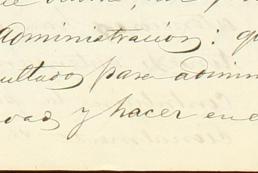 administración: q
cultado para admin
dad y hacer en e